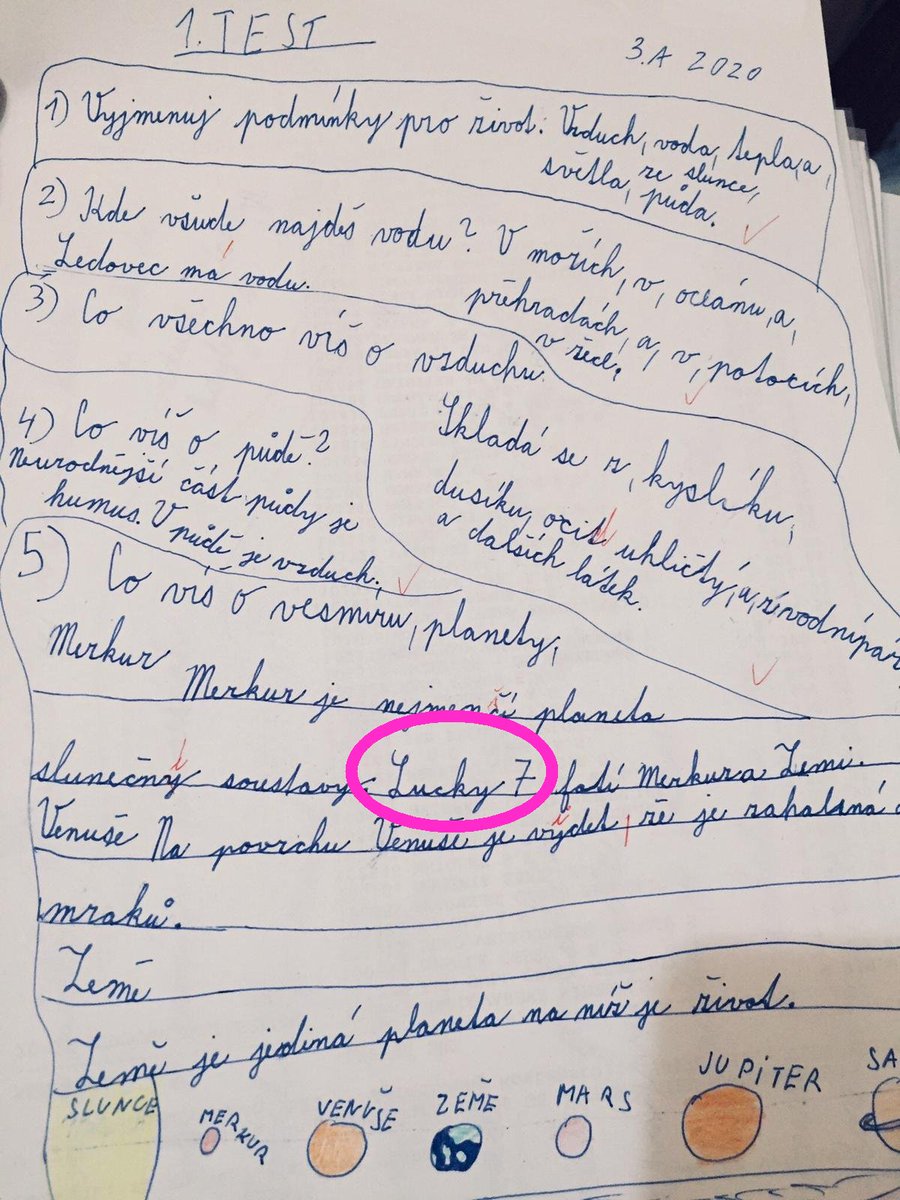 1. TEST
3.A 2020
1) Vyjmenuj podmínky pro život. Vzduch, voda, tepla a,
světla, ze slunce,
půda.
2) Kde všude najdeš vodu? V mořích, v, oceánu, a,
Ledovec má vodu.
přehradách, a, v, potocích,
v řece.
3) Co všechno víš o vzduchu.
Skladá se z, kyslíku,
dusíku, ocit uhličtý, a, z vodní pár
a dalších látek.
4) Co víš o půdě?
Neurodnější část půdy je
humus. V půdě je vzduch.
5) Co víš o vesmíru, planety,
Merkur
Merkur je nejmenčí planeta
slunečný soustavy. Lucky 7 fotí Merkur a Zemi.
Venuše Na povrchu Venuše je výdet, že je zahalená
mraků.
Země
Země je jediná planeta na níž je život.
SLUNCE
MERKUR
VENUŠE
ZEMĚ
MARS
JUPITER
SA